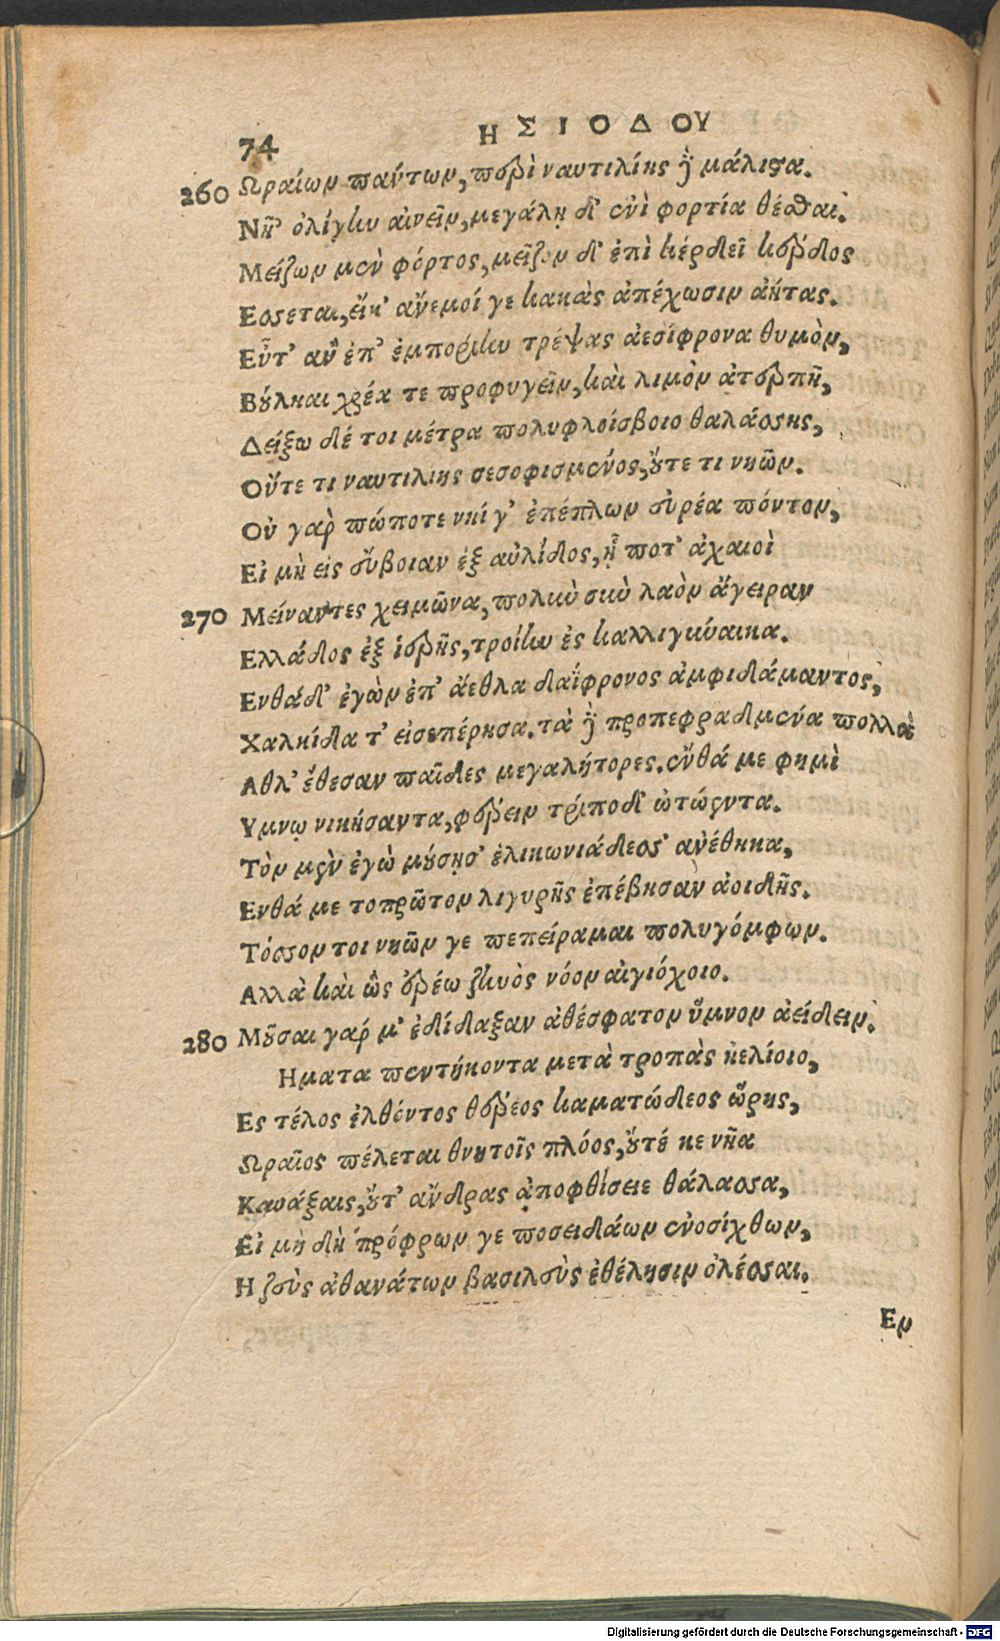 74
ΗΣΙΟΔΟΥ
260 Ωραίων πάντων, περὶ ναυτιλίης δὲ μάλιστα.
Νῆ' ὀλίγην αἰνεῖν, μεγάλῃ δ' ἐνὶ φορτία θέσθαι.
Μείζων μὲν φόρτος, μεῖζον δ' ἐπὶ κέρδει κέρδος
Εσσεται, εἴκ' ἄνεμοί γε κακὰς ἀπέχωσιν ἀήτας.
Εὖτ' ἂν ἐπ' ἐμπορίην τρέψας ἀεσίφρονα θυμὸν,
Βούληαι χρέα τε προφυγεῖν, καὶ λιμὸν ἀτερπῆ,
Δείξω δέ τοι μέτρα πολυφλοίσβοιο θαλάσσης,
Οὔτε τι ναυτιλίης σεσοφισμένος, οὔτε τι νηῶν.
Οὐ γὰρ πώποτε νηί γ' ἐπέπλων εὐρέα πόντον,
Εἰ μὴ εἰς εὔβοιαν ἐξ αὐλίδος, ᾗ ποτ' ἀχαιοὶ
270 Μείναντες χειμῶνα, πολὺν σὺν λαὸν ἄγειραν
Ελλάδος ἐξ ἱερῆς, τροίην ἐς καλλιγύναικα.
Ενθάδ' ἐγὼν ἐπ' ἄεθλα δαΐφρονος ἀμφιδάμαντος,
Χαλκίδα τ' εἰσεπέρησα. τὰ δὲ προπεφραδμένα πολλὰ
Αθλ' ἔθεσαν παῖδες μεγαλήτορες. ἔνθά με φημὶ
Υμνῳ νικήσαντα, φέρειν τρίποδ' ὠτώεντα.
Τὸν μὲν ἐγὼ μούσῃσ' ἑλικωνιάδεσσ' ἀνέθηκα,
Ενθά με τοπρῶτον λιγυρῆς ἐπέβησαν ἀοιδῆς.
Τόσσον τοι νηῶν γε πεπείραμαι πολυγόμφων.
Αλλὰ καὶ ὣς ἐρέω ζηνὸς νόον αἰγιόχοιο.
280 Μοῦσαι γάρ μ' ἐδίδαξαν ἀθέσφατον ὕμνον ἀείδειν.
Ηματα πεντήκοντα μετὰ τροπὰς ἠελίοιο,
Ες τέλος ἐλθόντος θέρεος καματώδεος ὥρης,
Ωραῖος πέλεται θνητοῖς πλόος, οὔτέ κε νῆα
Καυάξαις, οὔτ' ἄνδρας ἀποφθίσειε θάλασσα,
Εἰ μὴ δὴ πρόφρων γε ποσειδάων ἐνοσίχθων,
Η ζεὺς ἀθανάτων βασιλεὺς ἐθέλησιν ὀλέσσαι.
Εν
Digitalisierung gefördert durch die Deutsche Forschungsgemeinschaft - DFG